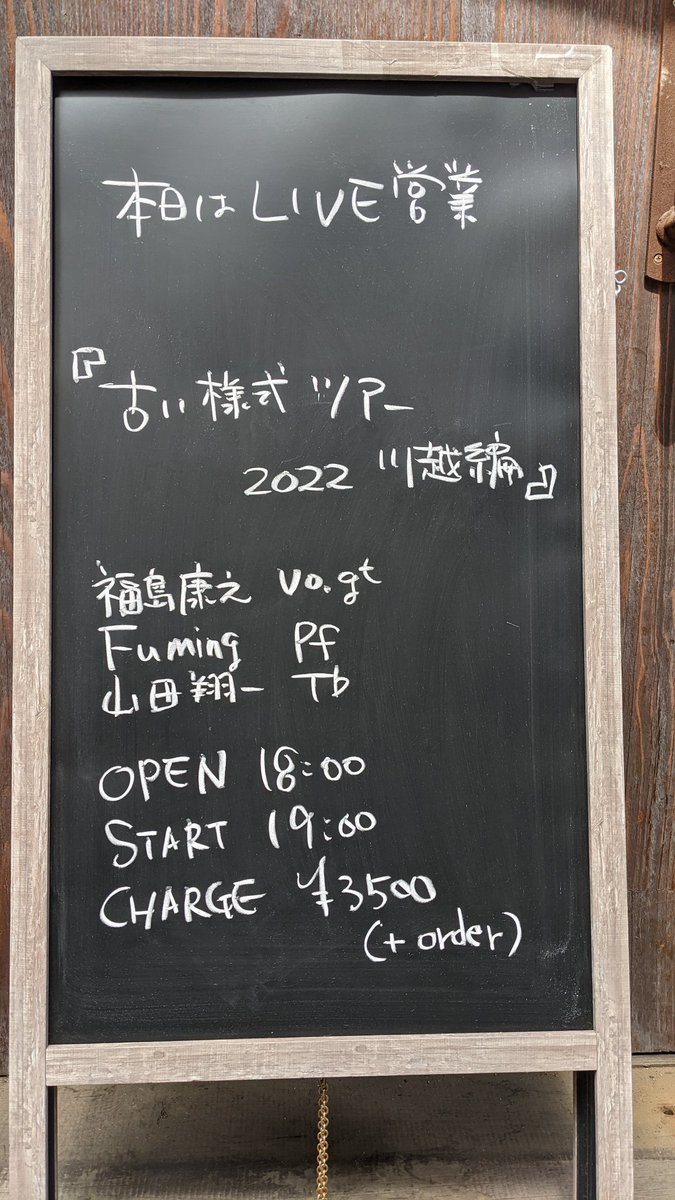 本日はLIVE営業
『古い様式ツアー
2022 川越編』
福島康之 vo.gt
Fuming Pf
山田翔一 Tb
OPEN 18:00
START 19:00
CHARGE ¥3500
(+ order)